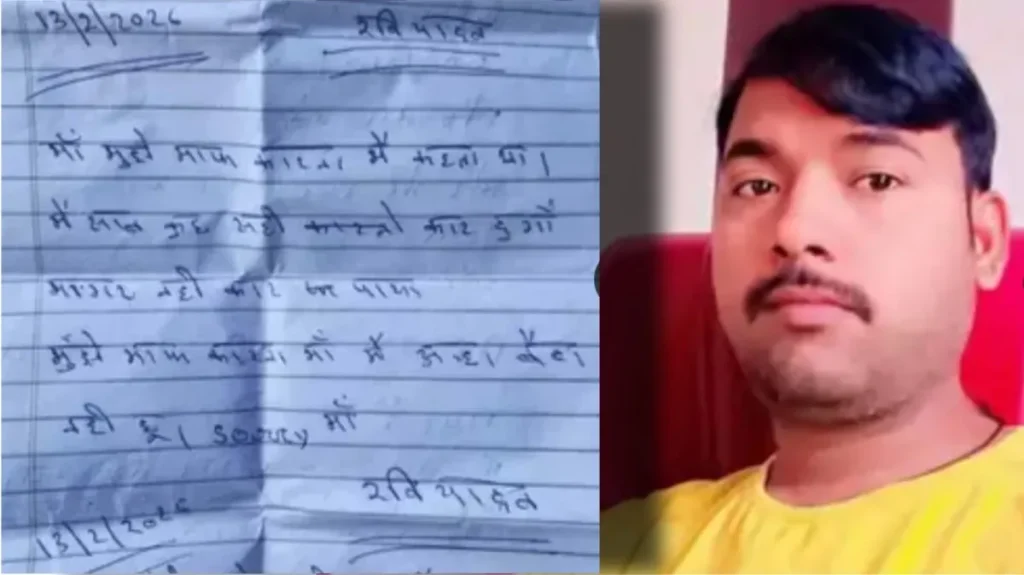 13/2/2026 रवि यादव
माँ मुझे माफ करना मैं कहता था।
मैं सब कुछ सही कर दुगाँ
मगर नही कर पाया
मुझे माफ करना माँ मैं अच्छा बेटा
नही हू। Soory माँ
रवि यादव
13/2/2026